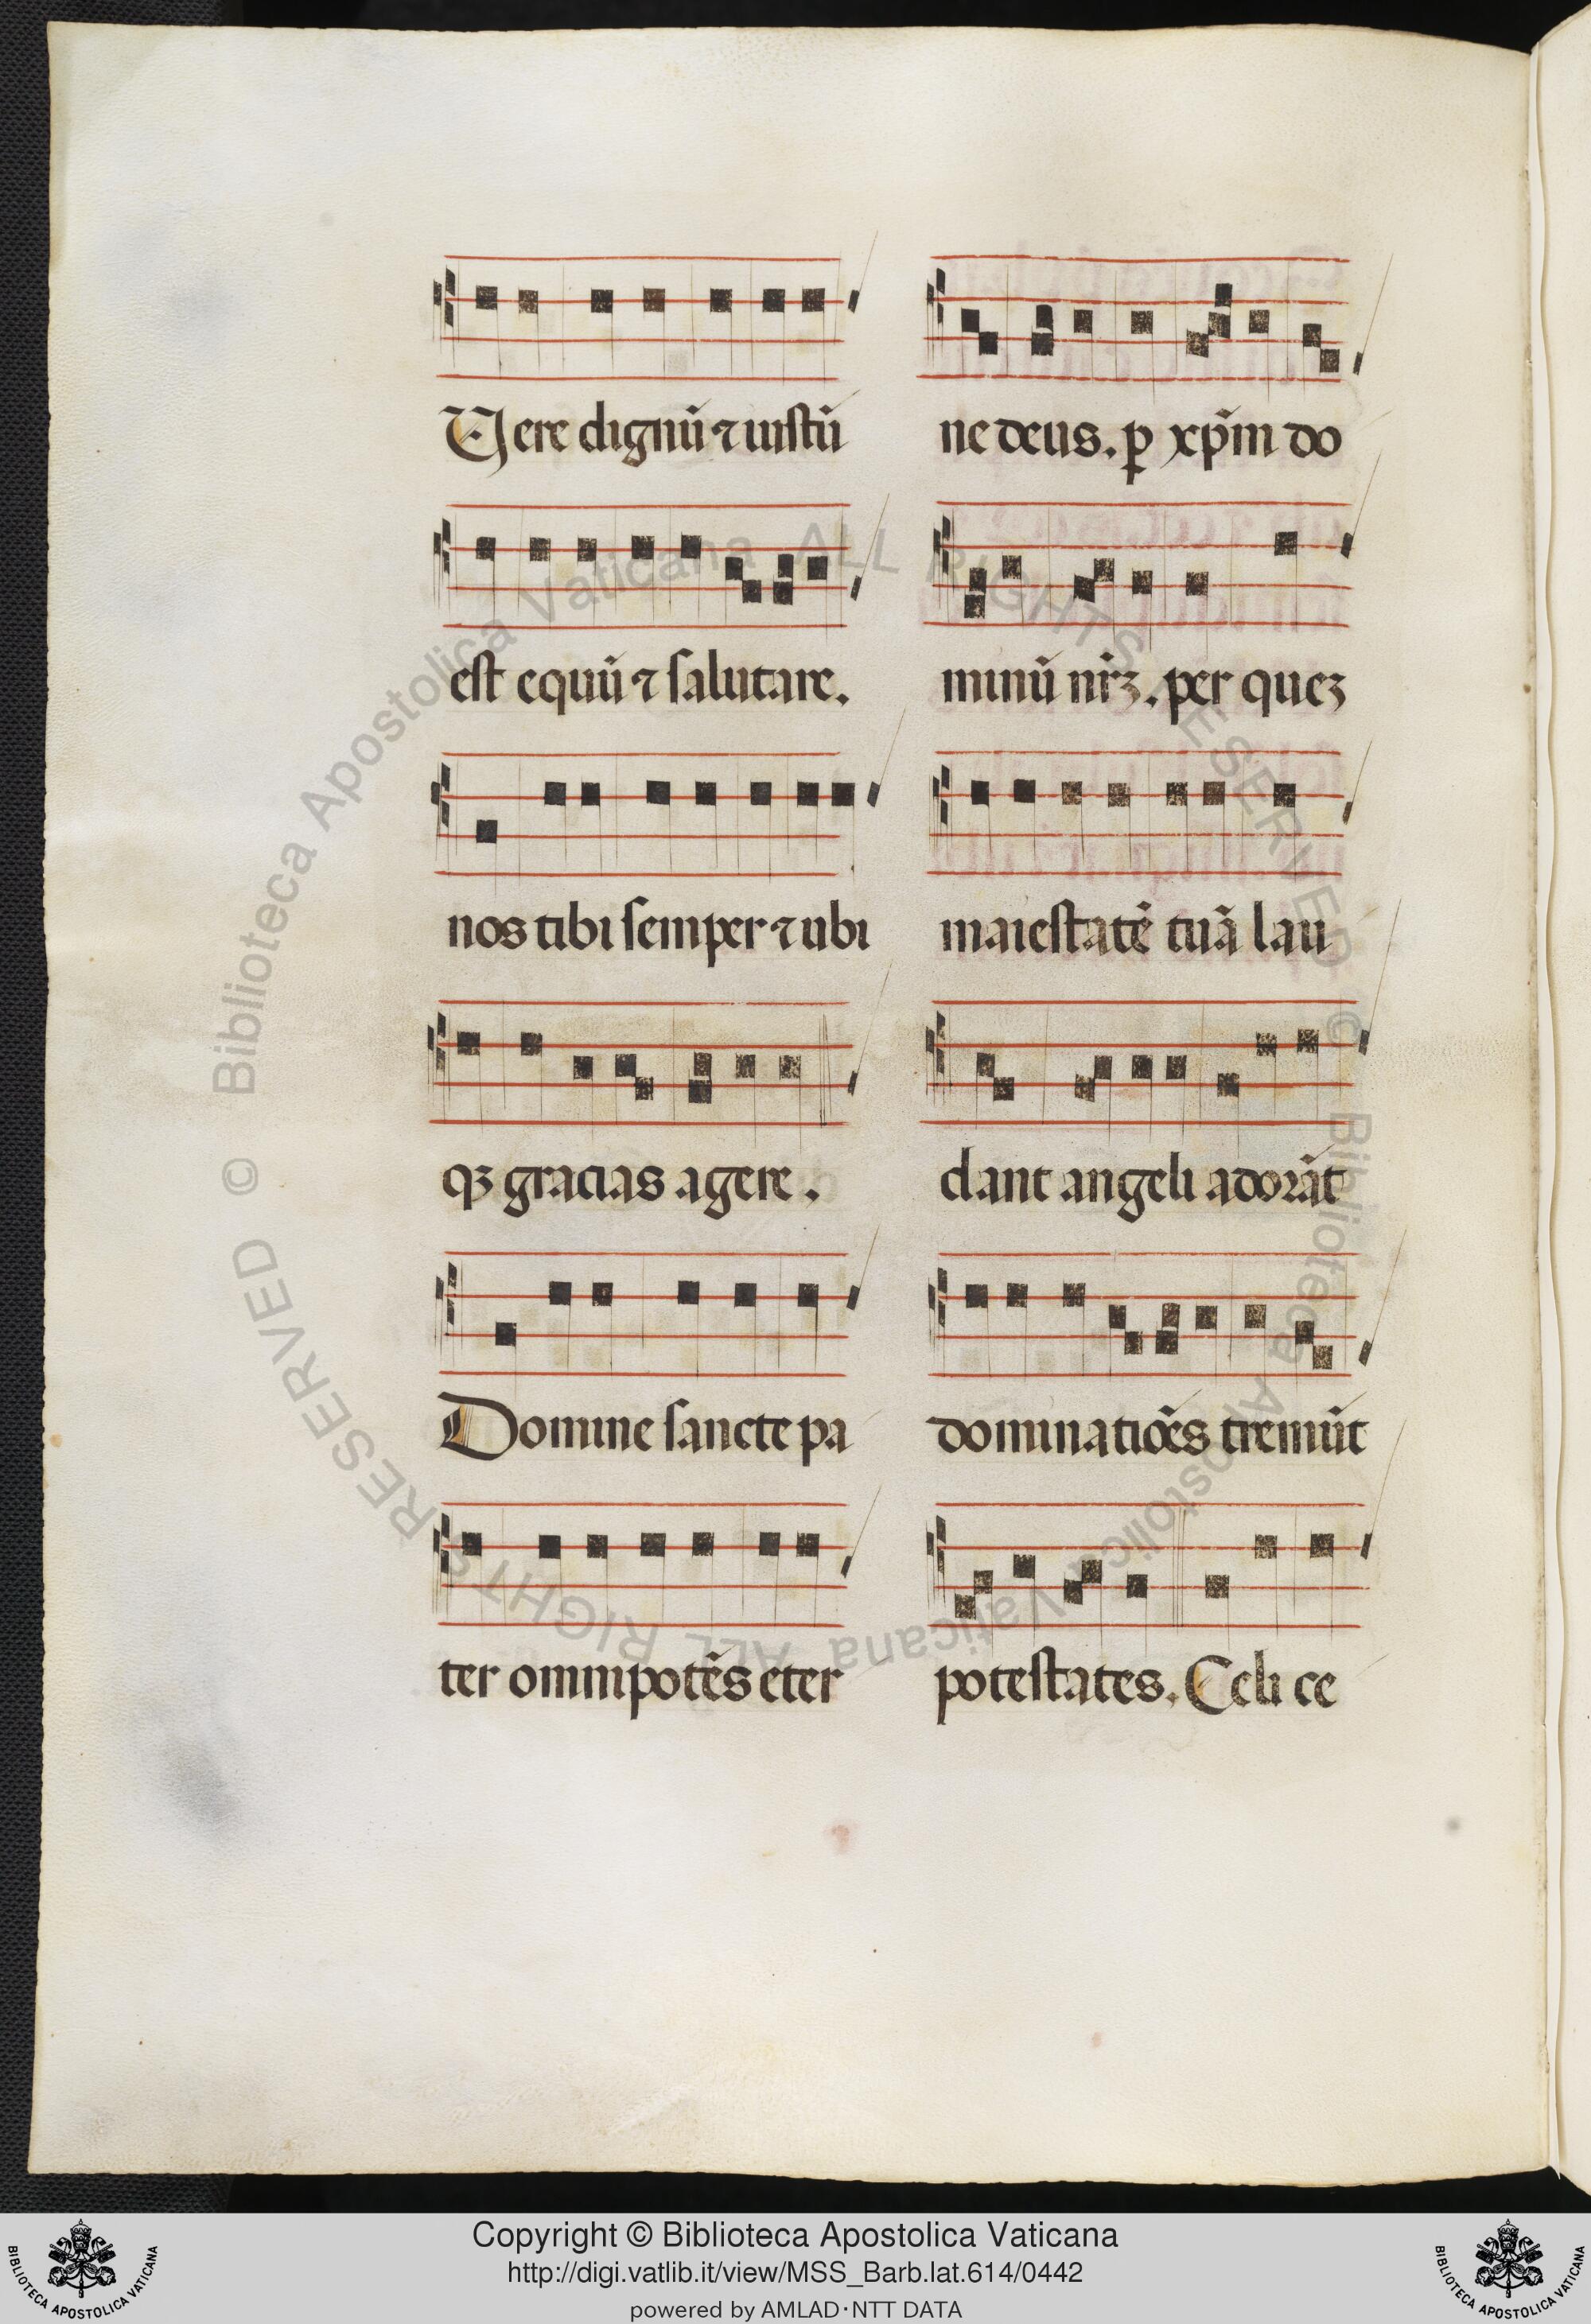 Vere dignũ ⁊ iustũ
est equũ ⁊ salutare.
nos tibi semper ⁊ ubi
qꝫ gracias agere.
Domine sancte pa
ter omnipotẽs eter
ne deus. ꝑ xp̃m do
minũ nr̃ꝫ. per queꝫ
maiestatẽ tuã lau
dant angeli adorãt
dominatiões tremũt
potestates. Celi ce
© Biblioteca Apostolica Vaticana ALL RIGHTS RESERVED © Biblioteca Apostolica Vaticana ALL RIGHTS RESERVED
Copyright © Biblioteca Apostolica Vaticana
http://digi.vatlib.it/view/MSS_Barb.lat.614/0442
powered by AMLAD·NTT DATA
BIBLIOTECA APOSTOLICA VATICANA
BIBLIOTECA APOSTOLICA VATICANA